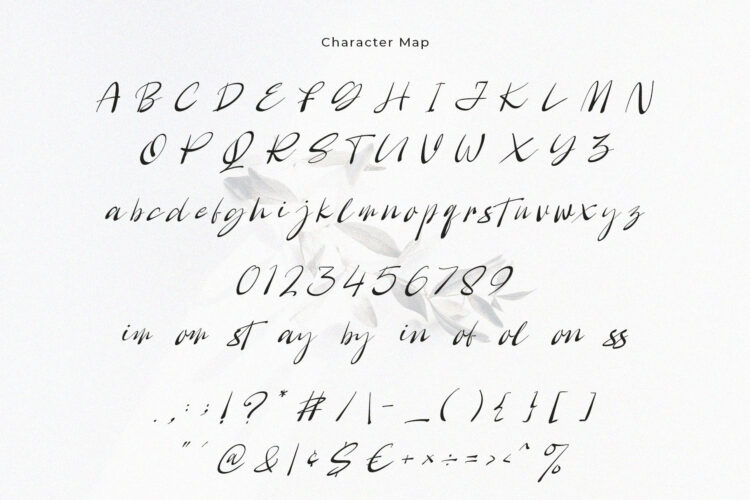 Character Map
A B C D E F G H I J K L M N
O P Q R S T U V W X Y Z
a b c d e f g h i j k l m n o p q r s t u v w x y z
0 1 2 3 4 5 6 7 8 9
im om st ay by in of ol on ss
. , : ; ! ? * # / \ - _ ( ) { } [ ]
" ' @ & | ¢ $ € + × ÷ = > < ^ %